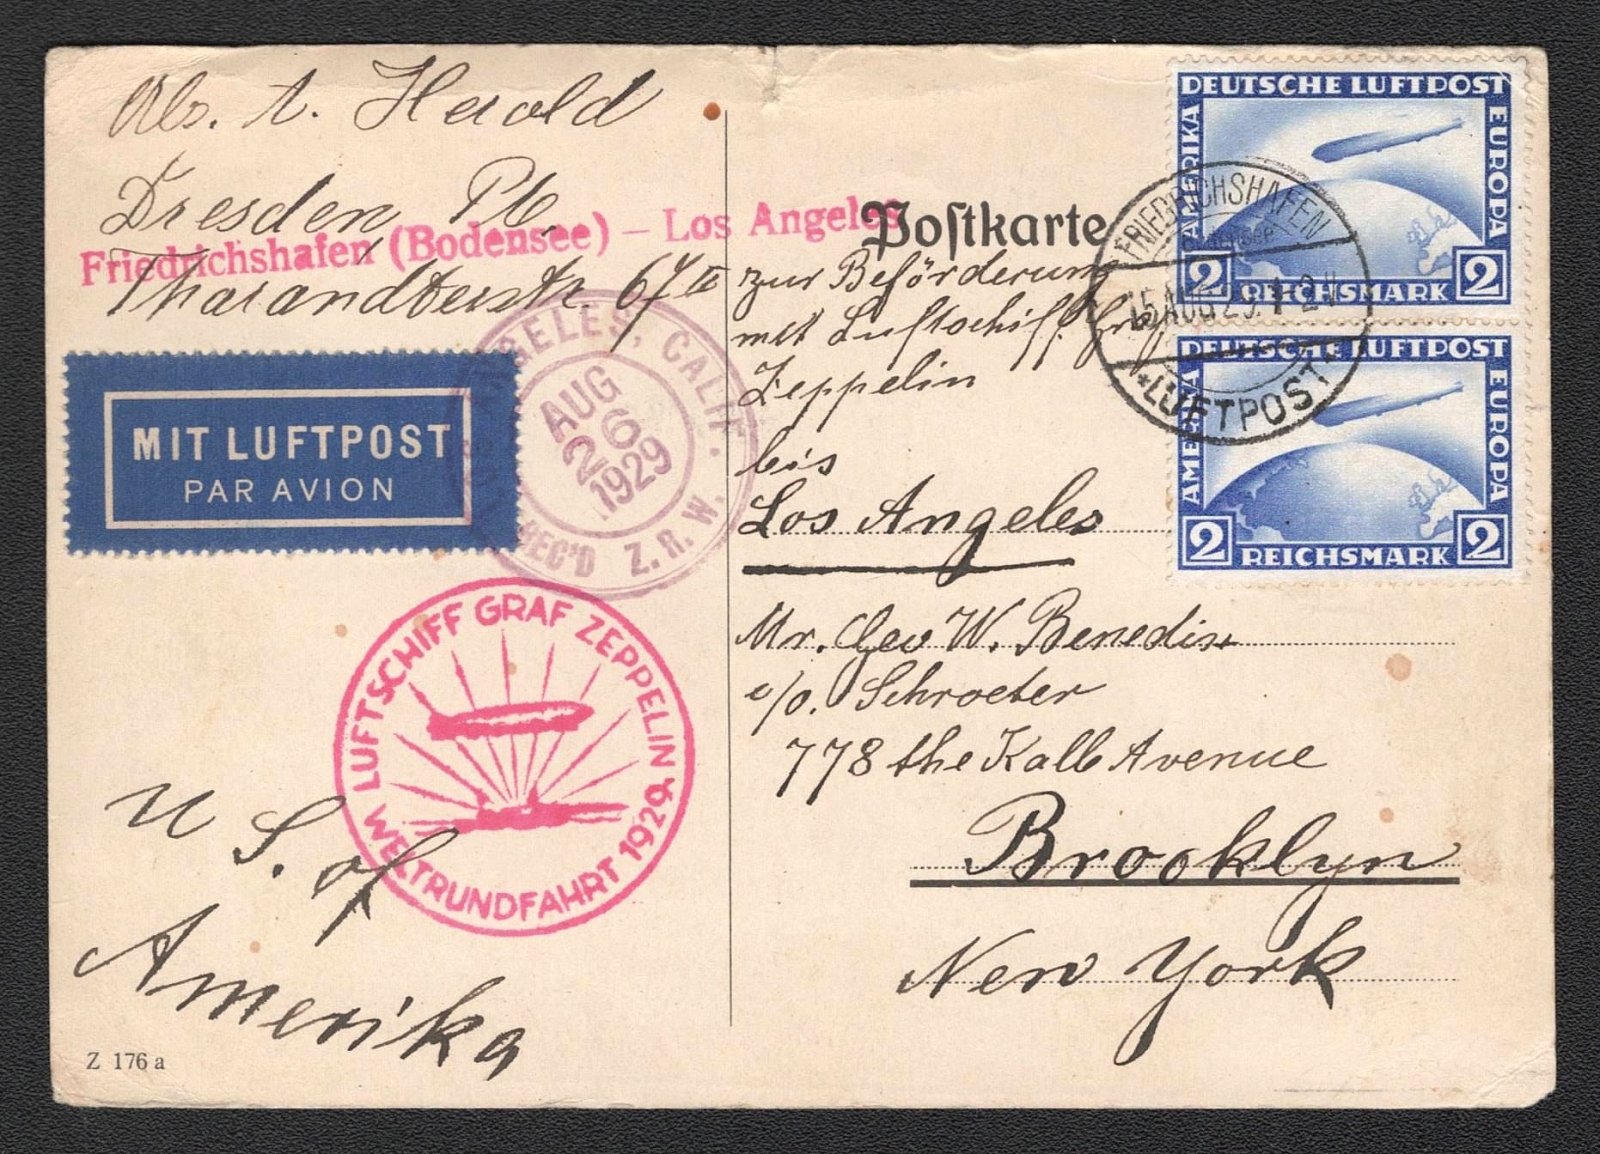 Abs. A. Herold
Dresden Pl.
Tharandterstr. 67 II
Friedrichshafen (Bodensee) – Los Angeles
MIT LUFTPOST
PAR AVION
ANGELES, CALIF.
AUG
26
1929
REC'D Z. R. W.
LUFTSCHIFF GRAF ZEPPELIN
WELTRUNDFAHRT 1929.
U S. of
Amerika
Z 176 a
Postkarte
zur Beförderung
mit Luftschiff Graf
Zeppelin
bis
Los Angeles
Mr. Geo W. Benedix
c/o. Schroeter
778 the Kalb Avenue
Brooklyn
New York
DEUTSCHE LUFTPOST
AMERIKA
EUROPA
2 REICHSMARK 2
FRIEDRICHSHAFEN
(Bodensee)
15 AUG 29. 1-2 V
* LUFTPOST *
DEUTSCHE LUFTPOST
AMERIKA
EUROPA
2 REICHSMARK 2